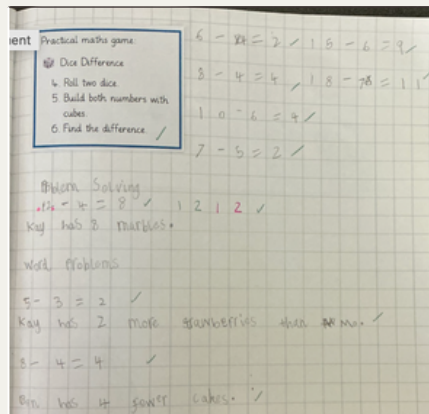 ent
Practical maths game:
Dice Difference
4. Roll two dice.
5. Build both numbers with
cubes.
6. Find the difference.
6 - 4 = 2
15 - 6 = 9
8 - 4 = 4
18 - 7 = 11
10 - 6 = 4
7 - 5 = 2
Problem Solving
12 - 4 = 8 1 2 1 2
Kay has 8 marbles.
Word Problems
5 - 3 = 2
Kay has 2 more strawberries than Mo.
8 - 4 = 4
has 4 fewer cakes.